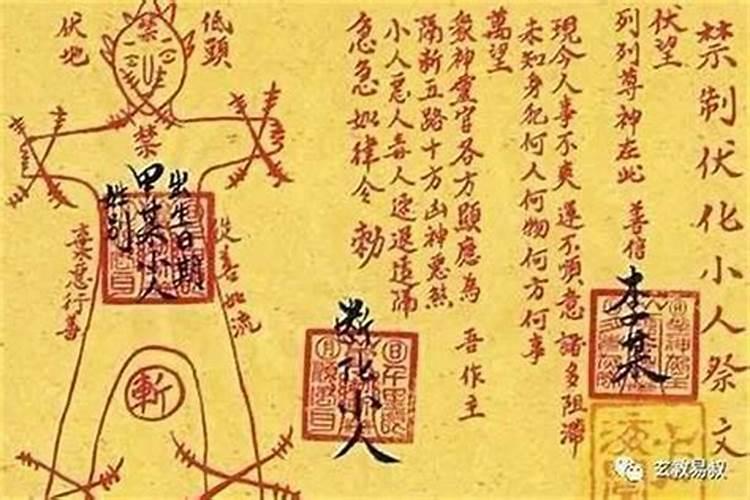 禁制伏化小人祭文
伏望
列列尊神在此 善信
李某
現今人事不爽運不順意諸多阻滯
未知身犯何人何物何方何事
萬望
眾神靈官各方顯應為 吾作主
隔斬五路十方凶神惡煞
小人惡人毒人速退遠隔
急急如律令 勅
斬化小人
低頭
伏地
禁
禁
出生日期
甲某小人
姓别
從善如流
棄惡行善
斬
玄教易叔